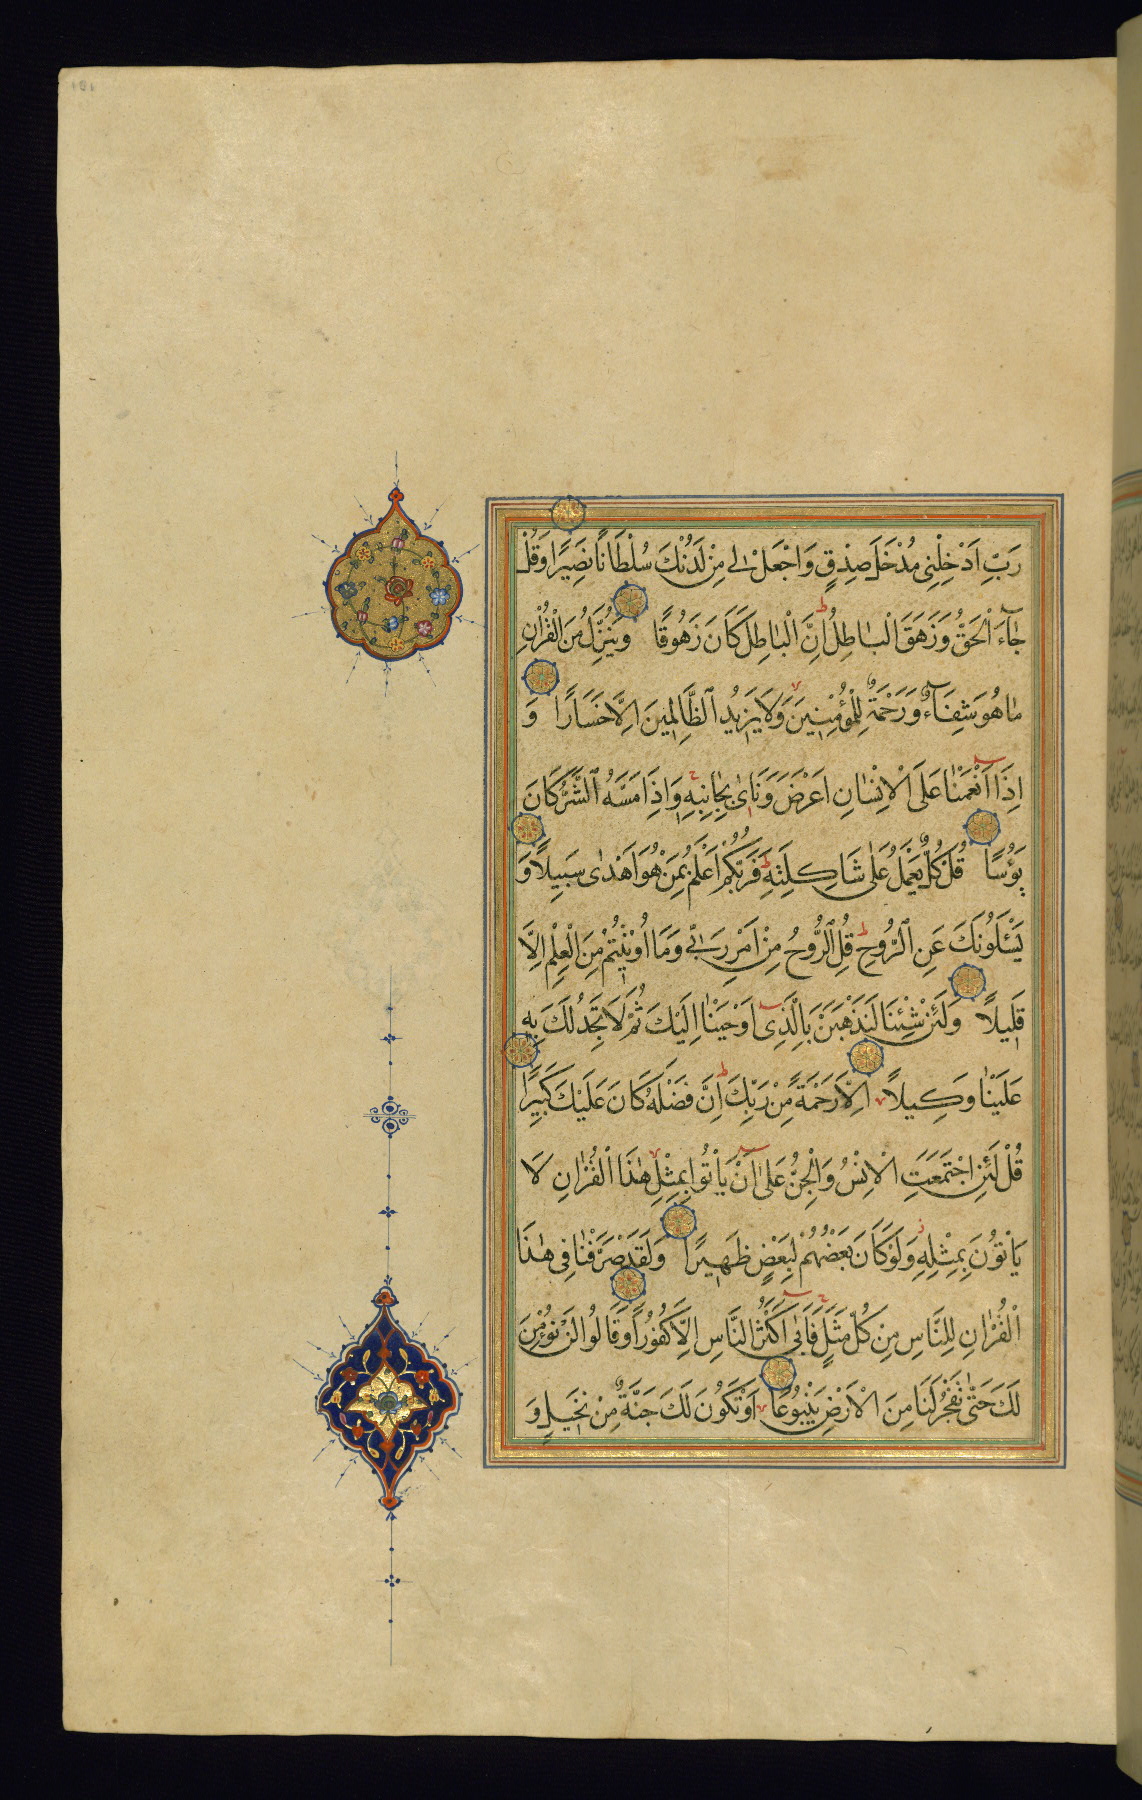 رَبِّ اَدْخِلْنِي مُدْخَلَ صِدْقٍ وَاجْعَلْ لِي مِنْ لَدُنْكَ سُلْطَانًا نَصِيرًا وَقُلْ
جَاءَ الْحَقُّ وَزَهَقَ الْبَاطِلُ اِنَّ الْبَاطِلَ كَانَ زَهُوقًا وَنُنَزِّلُ مِنَ الْقُرْاٰنِ
مَا هُوَ شِفَاءٌ وَرَحْمَةٌ لِلْمُؤْمِنِينَ وَلَا يَزِيدُ الظَّالِمِينَ اِلَّا خَسَارًا وَ
اِذَا اَنْعَمْنَا عَلَى الْاِنْسَانِ اَعْرَضَ وَنَاٰى بِجَانِبِهِ وَاِذَا مَسَّهُ الشَّرُّ كَانَ
يَؤُسًا قُلْ كُلٌّ يَعْمَلُ عَلٰى شَاكِلَتِهِ فَرَبُّكُمْ اَعْلَمُ بِمَنْ هُوَ اَهْدٰى سَبِيلًا وَ
يَسْئَلُونَكَ عَنِ الرُّوحِ قُلِ الرُّوحُ مِنْ اَمْرِ رَبِّي وَمَا اُوتِيتُمْ مِنَ الْعِلْمِ اِلَّا
قَلِيلًا وَلَئِنْ شِئْنَا لَنَذْهَبَنَّ بِالَّذِي اَوْحَيْنَا اِلَيْكَ ثُمَّ لَا تَجِدُ لَكَ بِهِ
عَلَيْنَا وَكِيلًا اِلَّا رَحْمَةً مِنْ رَبِّكَ اِنَّ فَضْلَهُ كَانَ عَلَيْكَ كَبِيرًا
قُلْ لَئِنِ اجْتَمَعَتِ الْاِنْسُ وَالْجِنُّ عَلٰى اَنْ يَأْتُوا بِمِثْلِ هٰذَا الْقُرْاٰنِ لَا
يَأْتُونَ بِمِثْلِهِ وَلَوْ كَانَ بَعْضُهُمْ لِبَعْضٍ ظَهِيرًا وَلَقَدْ صَرَّفْنَا فِي هٰذَا
الْقُرْاٰنِ لِلنَّاسِ مِنْ كُلِّ مَثَلٍ فَاَبٰى اَكْثَرُ النَّاسِ اِلَّا كُفُورًا وَقَالُوا لَنْ نُؤْمِنَ
لَكَ حَتّٰى تَفْجُرَ لَنَا مِنَ الْاَرْضِ يَنْبُوعًا اَوْ تَكُونَ لَكَ جَنَّةٌ مِنْ نَخِيلٍ وَ